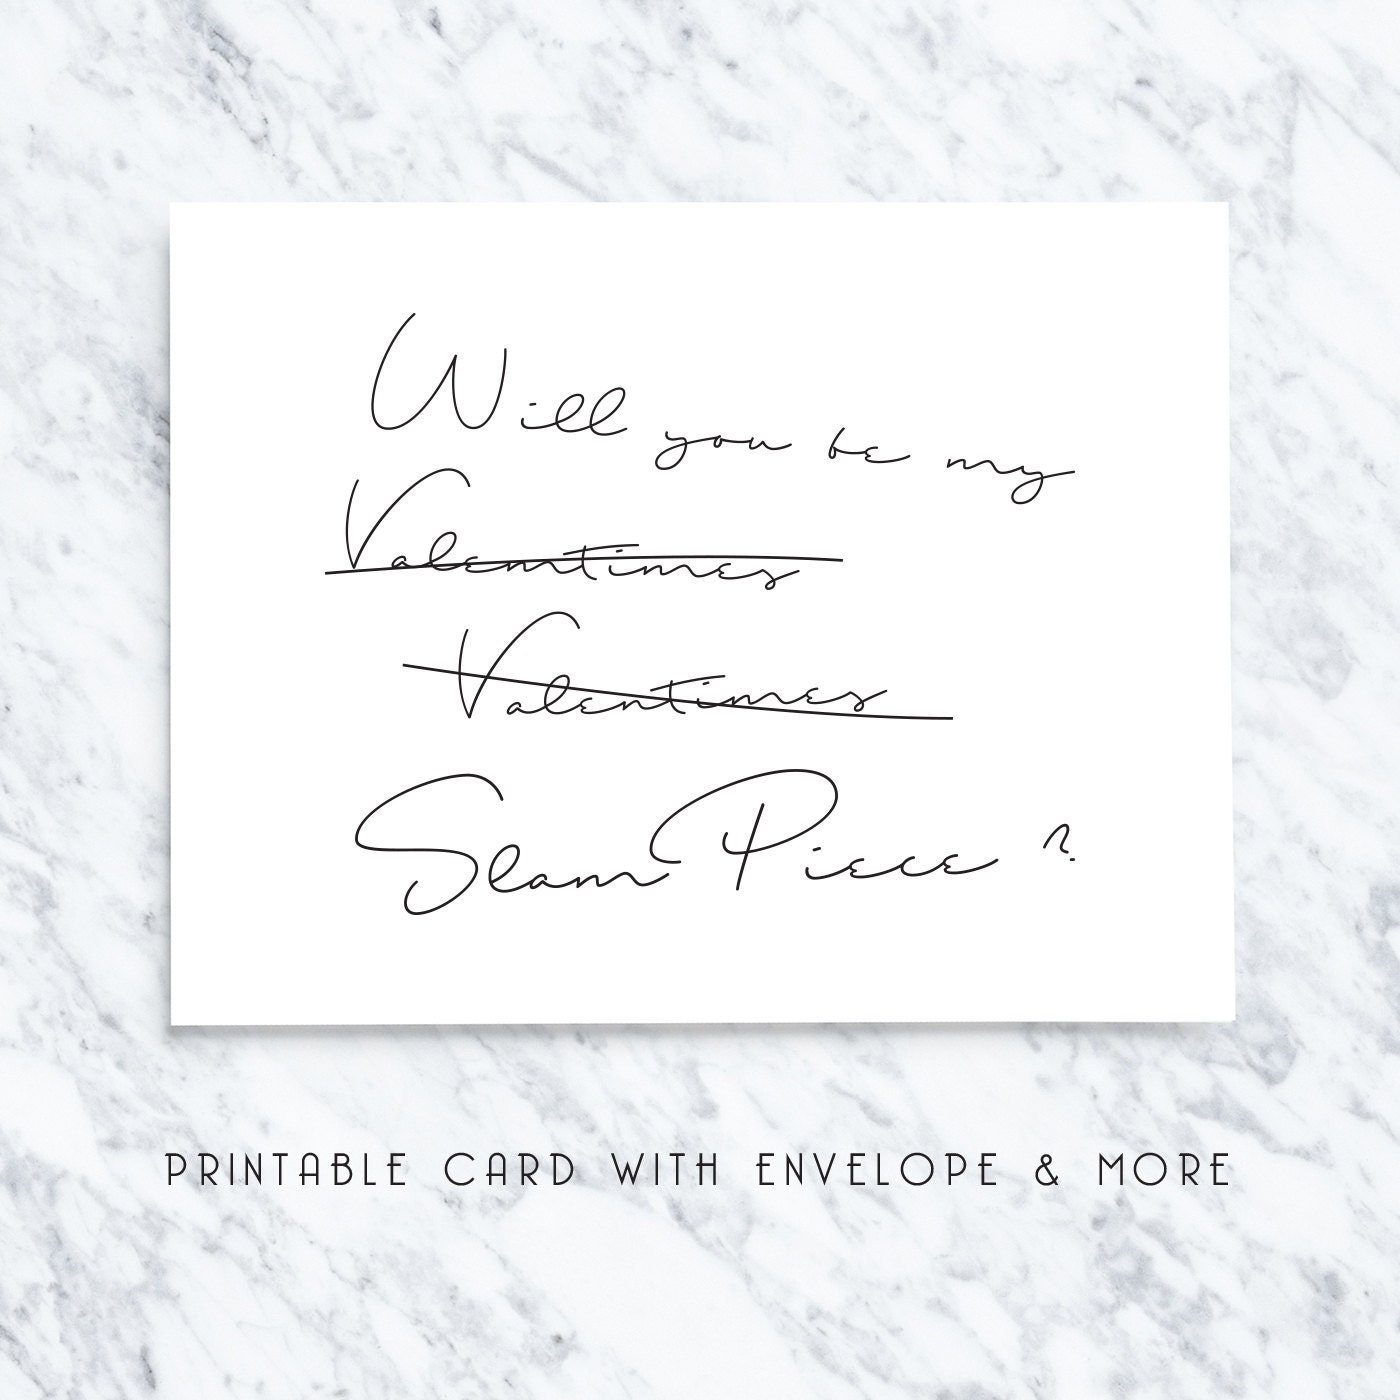 Will you be my
Valemtimes
Valentimes
Slam Piece ?
PRINTABLE CARD WITH ENVELOPE & MORE